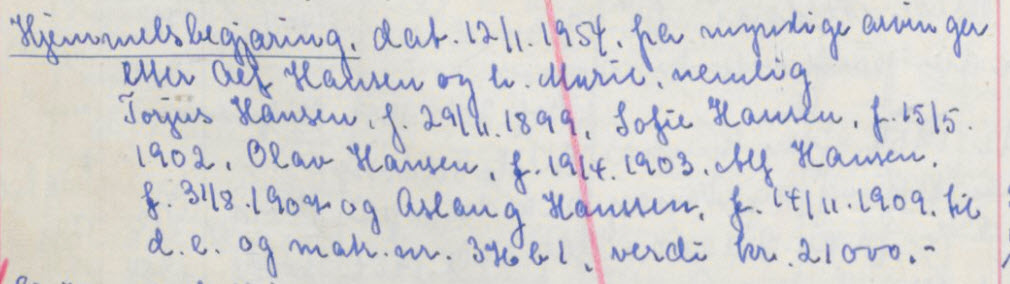 Hjemmelsbegjæring. dat. 12/1.1954. fra myndige arvinger
etter Alf Hansen og h. Marie, nemlig
Torjus Hansen, f. 29/11.1899, Sofie Hansen, f. 15/5.
1902, Olav Hansen, f. 19/4.1903. Alf Hansen.
f. 31/8.1907 og Aslaug Hansen, f. 14/11.1909. til
d.e. og matr.nr. verdi kr. 21000.-